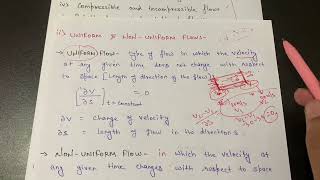 iv) Compressible and Incompressible flows
ii) UNIFORM & NON-UNIFORM FLOWS-
→ UNIFORM Flow- type of flow in which the velocity
at any given time does not change with respect
to space [Length of direction of the flow].
[∂V/∂S] t = constant = 0
∂V = change of velocity
∂S = length of flow in the direction S.
→ NON-UNIFORM FLOW- in which the velocity at
any given time changes with respect to space